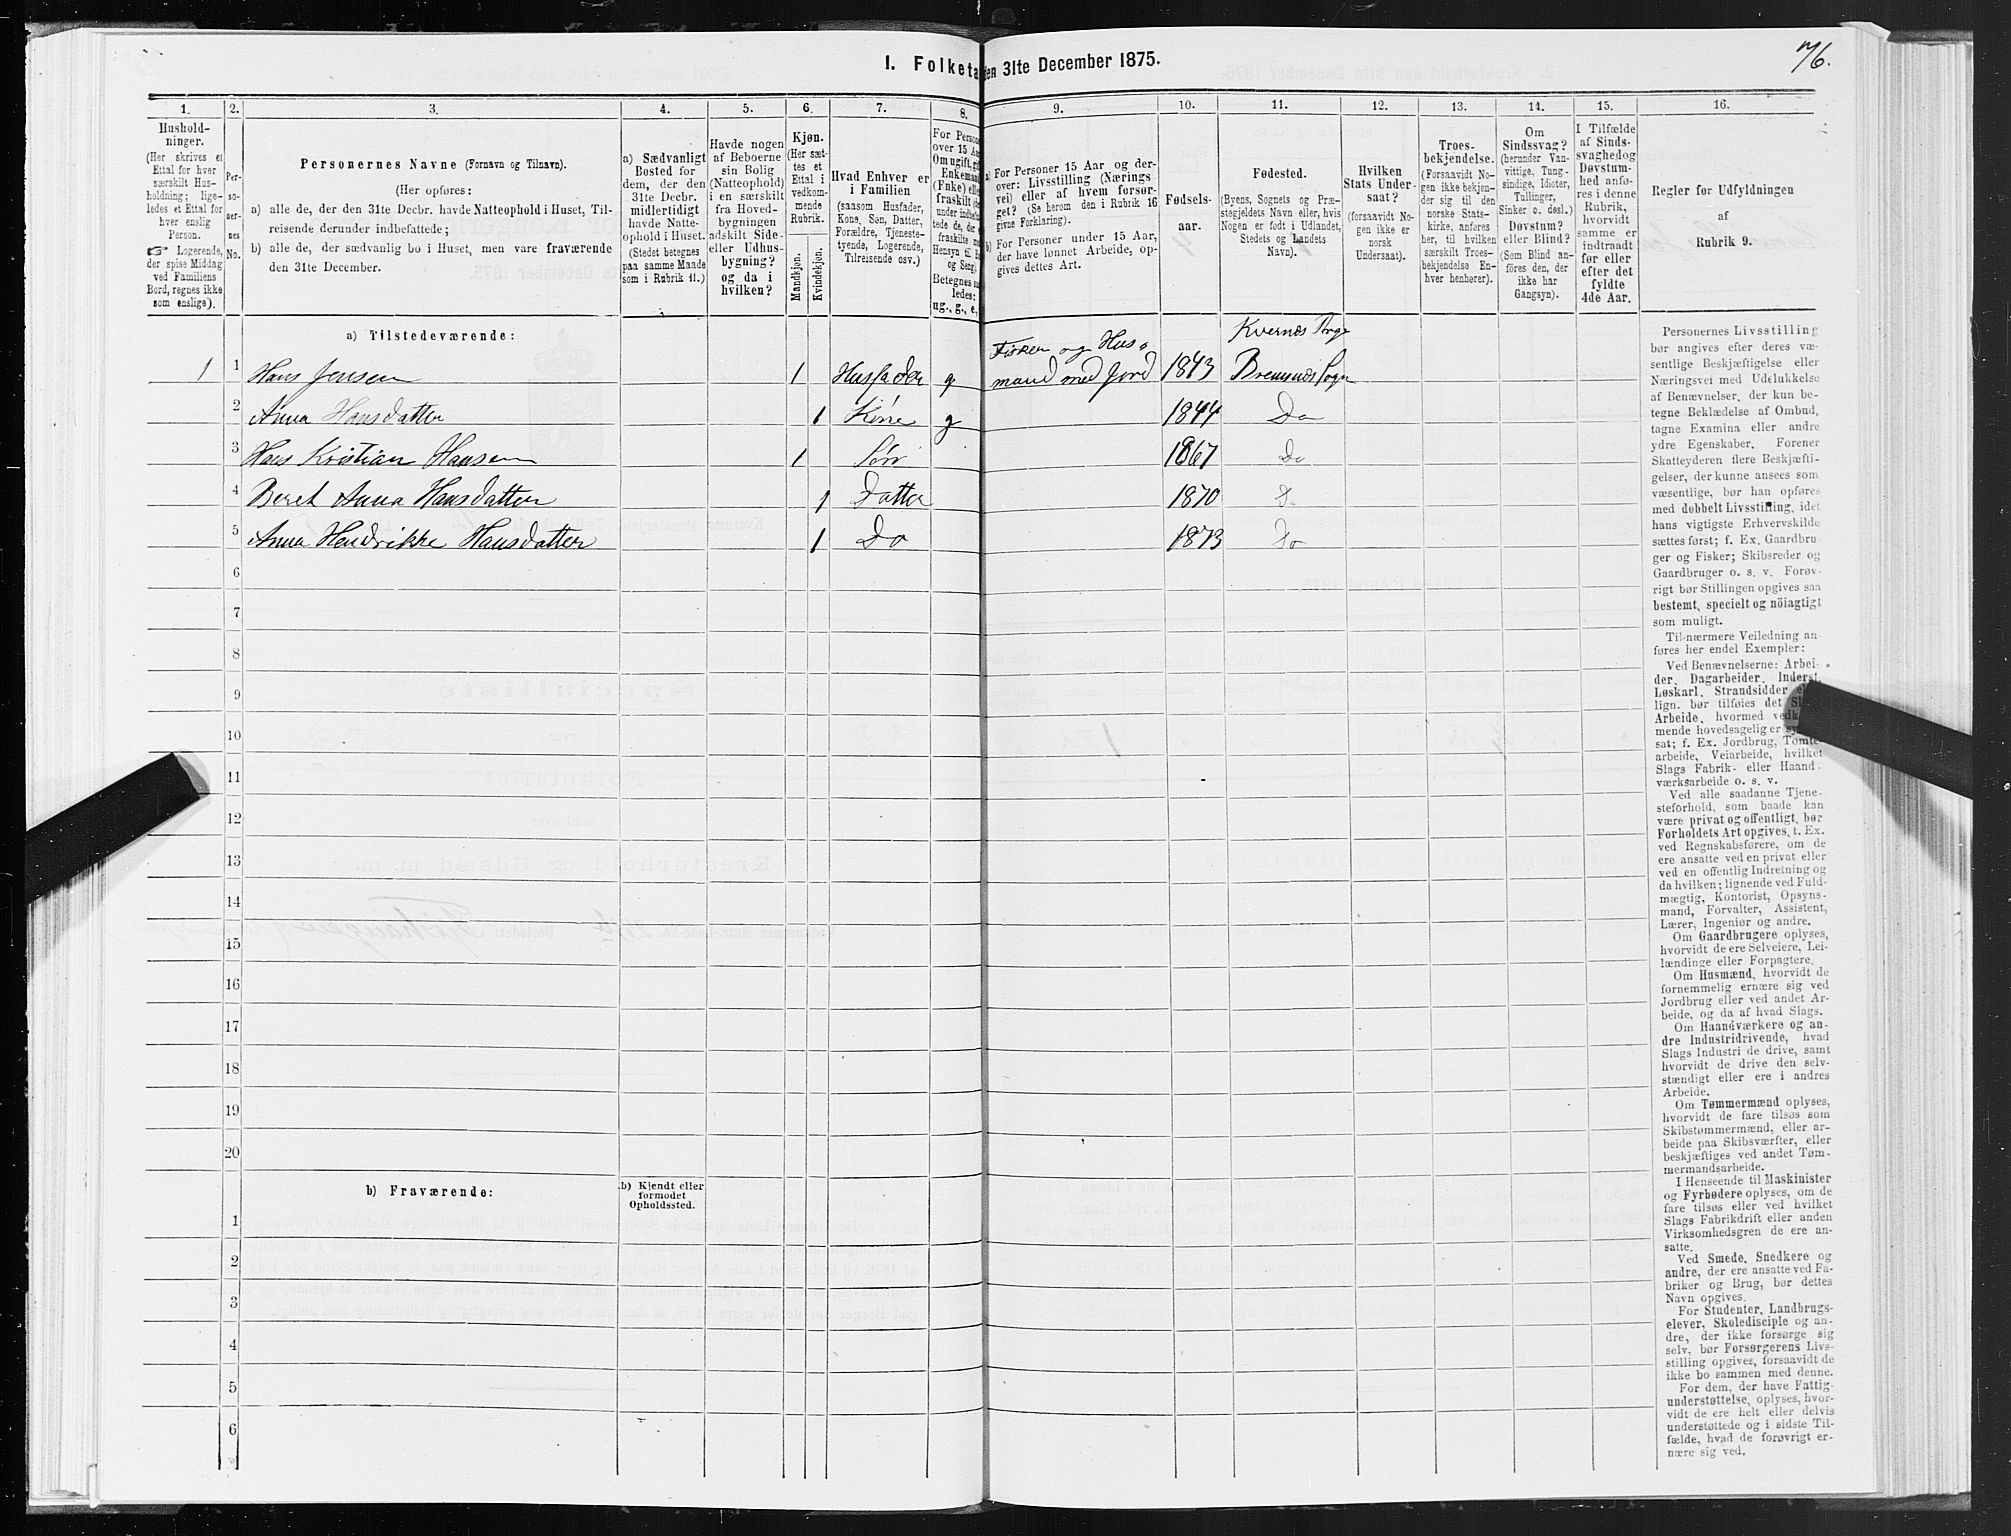 76.
I. Folketa den 31te December 1875.
1. 2. 3. 4. 5. 6. 7. 8. 9. 10. 11. 12. 13. 14. 15. 16.
Hushold-
ninger.
(Her skrives et
Ettal for hver
særskilt Hus-
holdning; lige-
ledes et Ettal for
hver enslig
Person.
☞ Logerende,
der spise Middag
ved Familiens
Bord, regnes ikke
som enslige).
Per-
so-
ner-
nes
No.
Personernes Navne (Fornavn og Tilnavn).
(Her opføres:
a) alle de, der den 31te Decbr. havde Natteophold i Huset, Til-
reisende derunder indbefattede;
b) alle de, der sædvanlig bo i Huset, men vare fraværende
den 31te December.
a) Sædvanligt
Bosted for
dem, der den
31te Decbr.
midlertidigt
havde Natte-
ophold i Huset.
(Stedet betegnes
paa samme Maade
som i Rubrik 11.)
Havde nogen
af Beboerne
sin Bolig
(Natteophold)
i en særskilt
fra Hoved-
bygningen
adskilt Side-
eller Udhus-
bygning?
og da i
hvilken?
Kjøn.
(Her sæt-
tes et
Ettal i
vedkom-
mende
Rubrik.
Mandkjøn.
Kvindekjøn.
Hvad Enhver er
i Familien
(saasom Husfader,
Kone, Søn, Datter,
Forældre, Tjeneste-
tyende, Logerende,
Tilreisende osv.)
For Person
over 15 Aa
Om ugift, gif
Enkemand
(Fnke) elle
fraskilt (he
under indbefat-
tede de, der
fraskilte me
Hensyn til Bo
og Seng).
Betegnes saa
ledes:
ug., g., e.,
a) For Personer 15 Aar og der-
over: Livsstilling (Nærings
vei) eller af hvem forsør-
get? (Se herom den i Rubrik 16
givne Forklaring).
b) For Personer under 15 Aar,
der have lønnet Arbeide, op-
gives dettes Art.
Fødsels-
aar.
Fødested.
(Byens, Sognets og Præ-
stegjeldets Navn eller, hvis
Nogen er født i Udlandet,
Stedets og Landets
Navn).
Hvilken
Stats Under-
saat?
(forsaavidt No-
gen ikke er
norsk
Undersaat).
Troes-
bekjendelse.
(Forsaavidt No-
gen ikke bekjen-
der sig til den
norske Stats-
kirke, anføres
her, til hvilken
særskilt Troes-
bekjendelse En-
hver henhører).
Om
Sindssvag?
(herunder Van-
vittige, Tung-
sindige, Idioter,
Tullinger,
Sinker o. desl.)
Døvstum?
eller Blind?
(Som Blind an-
føres den, der
ikke har
Gangsyn).
I Tilfælde
af Sinds-
svaghed og
Døvstum-
hed anfø-
res i denne
Rubrik,
hvorvidt
samme er
indtraadt
før eller
efter det
fyldte
4de Aar.
Regler for Udfyldningen
af
Rubrik 9.
a) Tilstedeværende:
1 1 Hans Jensen 1 Husfader g Fisker og Hus-
mand med Jord 1843 Kvernæs Prg
Bremsnæs Sogn
2 Anna Hansdatter 1 Kone g 1844 Do
3 Hans Kristian Hansen 1 Søn 1867 Do
4 Beret Anna Hansdatter 1 Datter 1870 Do
5 Anna Hendrikke Hansdatter 1 Do 1873 Do
6
7
8
9
10
11
12
13
14
15
16
17
18
19
20
b) Fraværende:
b) Kjendt eller
formodet
Opholdssted.
1
2
3
4
5
6
Personernes Livsstilling
bør angives efter deres væ-
sentlige Beskjæftigelse eller
Næringsvei med Udelukkelse
af Benævnelser, der kun be-
tegne Beklædelse af Ombud,
tagne Examina eller andre
ydre Egenskaber. Forener
Skatteyderen flere Beskjæfti-
gelser, der kunne ansees som
væsentlige, bør han opføres
med dobbelt Livsstilling, idet
hans vigtigste Erhvervskilde
sættes først; f. Ex. Gaardbru-
ger og Fisker; Skibsreder og
Gaardbruger o. s. v. Forøv-
rigt bør Stillingen opgives saa
bestemt, specielt og nöiagtigt
som muligt.
Til nærmere Veiledning an-
føres her endel Exempler:
Ved Benævnelserne: Arbei-
der, Dagarbeider, Inderst,
Løskarl, Strandsidder
lign. bør tilføies det
Arbeide, hvormed
mende hovedsagelig er
sat; f. Ex. Jordbrug, Tømte-
arbeide, Veiarbeide, hvilket
Slags Fabrik- eller Haand-
værksarbeide o. s. v.
Ved alle saadanne Tjene-
steforhold, som baade kan
være privat og offentligt, bør
Forholdets Art opgives, t. Ex.
ved Regnskabsførere, om de
ere ansatte ved en privat eller
ved en offentlig Indretning og
da hvilken; lignende ved Fuld-
mægtig, Kontorist, Opsyns-
mand, Forvalter, Assistent,
Lærer, Ingeniør og andre.
Om Gaardbrugere oplyses,
hvorvidt de ere Selveiere, Lei-
lændinge eller Forpagtere.
Om Husmænd, hvorvidt de
fornemmelig ernære sig ved
Jordbrug eller ved andet Ar-
beide, og da af hvad Slags.
Om Haandværkere og an-
dre Industridrivende, hvad
Slags Industri de drive, samt
hvorvidt de drive den selv-
stændigt eller ere i andres
Arbeide.
Om Tømmermænd oplyses,
hvorvidt de fare tilsøs som
Skibstømmermænd, eller ar-
beide paa Skibsværfter, eller
beskjæftiges ved andet Tøm-
mermandsarbeide.
I Henseende til Maskinister
og Fyrbødere oplyses, om de
fare tilsøs eller ved hvilket
Slags Fabrikdrift eller anden
Virksomhedsgren de ere an-
satte.
Ved Smede, Snedkere og
andre, der ere ansatte ved Fa-
briker og Brug, bør dettes
Navn opgives.
For Studenter, Landbrugs-
elever, Skoledisciple og an-
dre, der ikke forsørge sig
selv, bør Forsørgerens Livs-
stilling opgives, forsaavidt de
ikke bo sammen med denne.
For dem, der have Fattig-
understøttelse, oplyses, hvor-
vidt de ere helt eller delvis
understøttede og i sidste Til-
fælde, hvad de forøvrigt er-
nære sig ved.